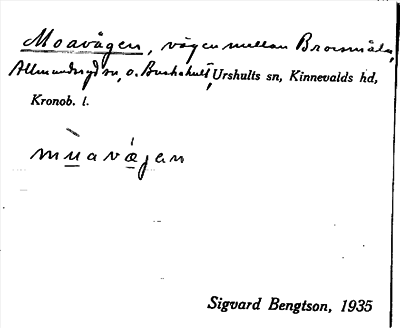 Moavägen, vägen mellan Brosmåla,
Allmundsryd sn, o. Buskahult, Urshults sn, Kinnevalds hd,
Kronob. l.
mùavǽgan
Sigvard Bengtson, 1935